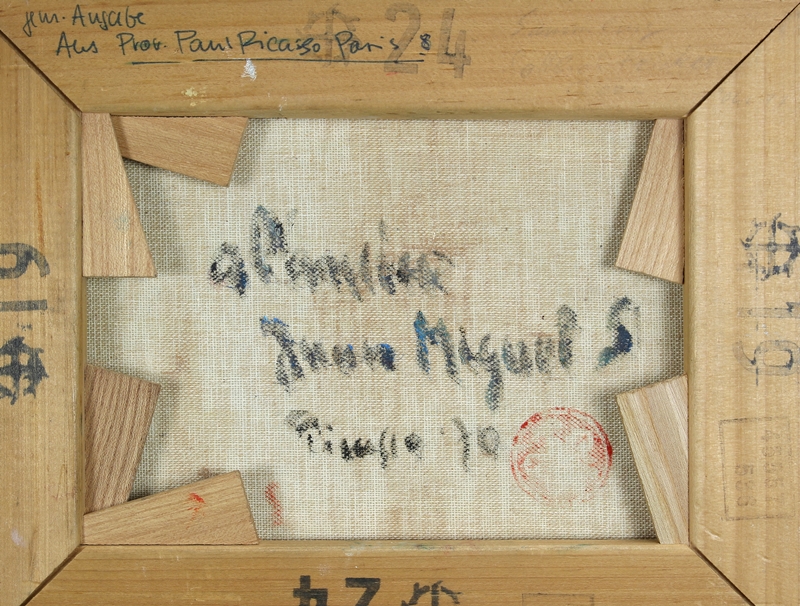 gem. Angabe
Aus Prov. Paul Picasso Paris 8
24
19
19
Juan Miguel S
Picasso 70
24